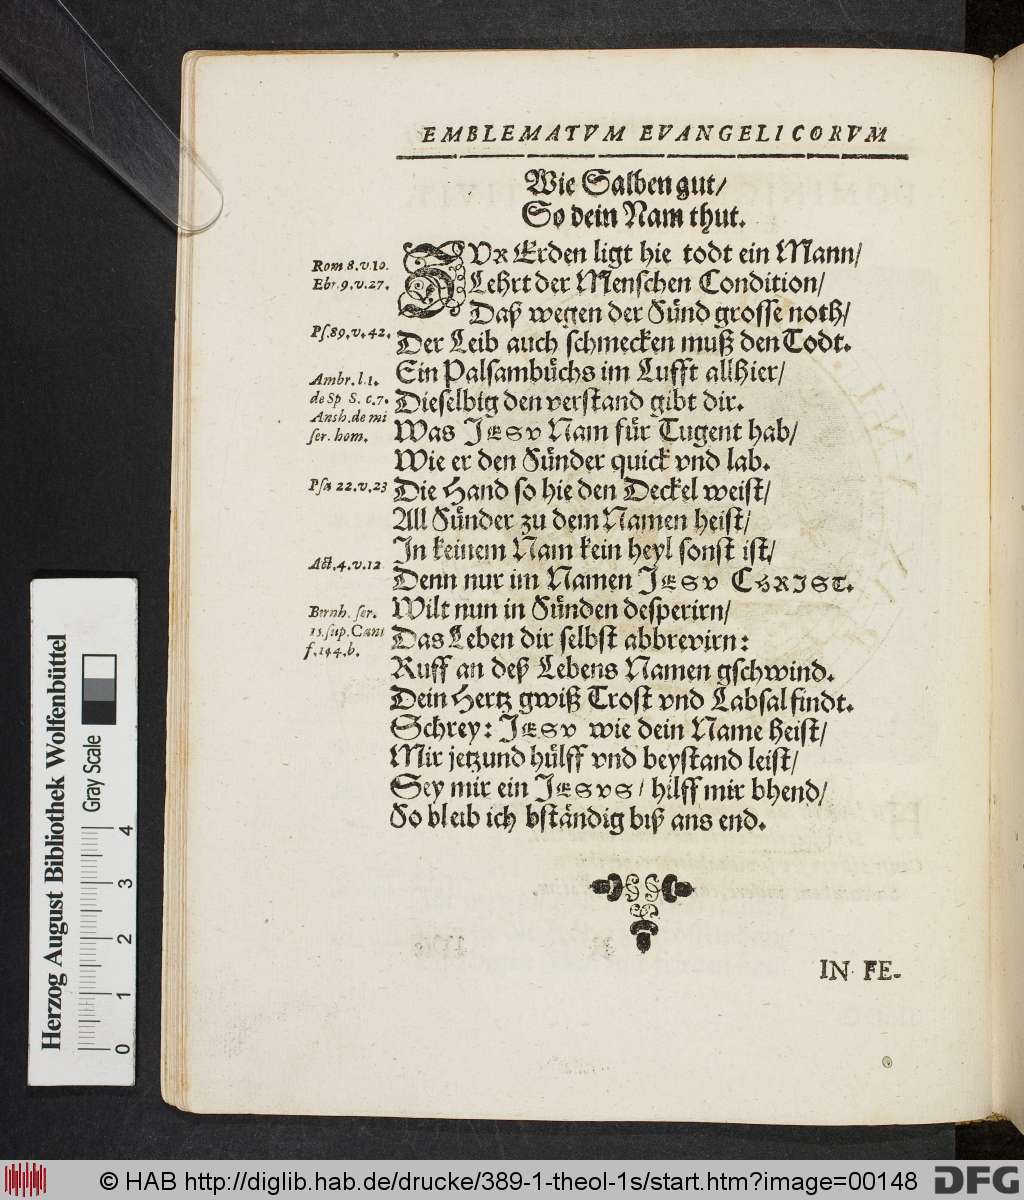 EMBLEMATVM EVANGELICORVM
Wie Salben gut/
So dein Nam thut.
ZVR Erden ligt hie todt ein Mann/
Lehrt der Menschen Condition/
Daß wegen der Sünd grosse noth/
Der Leib auch schmecken muß den Todt.
Ein Palsambüchs im Lufft allhier/
Dieselbig den verstand gibt dir.
Was JESV Nam für Tugent hab/
Wie er den Sünder quick vnd lab.
Die Hand so hie den Deckel weist/
All Sünder zu dem Namen heist/
In keinem Nam kein heyl sonst ist/
Denn nur im Namen JESV CHRIST.
Wilt nun in Sünden desperirn/
Das Leben dir selbst abbrevirn:
Ruff an deß Lebens Namen gschwind.
Dein Hertz gwiß Trost vnd Labsal findt.
Schrey: JESV wie dein Name heist/
Mir jetzund hülff vnd beystand leist/
Sey mir ein JESVS/ hilff mir bhend/
So bleib ich bständig biß ans end.
Rom 8.v.10.
Ebr.9.v.27.
Ps.89.v.42.
Ambr.l.1.
de Sp S. c.7.
Ansh.de mi
ser. hom.
Psa 22.v.23
Act.4.v.12
Bernh. ser.
15.sup.Cant
f.144.b.
IN FE-
Herzog August Bibliothek Wolfenbüttel
Gray Scale
0 1 2 3 4
© HAB http://diglib.hab.de/drucke/389-1-theol-1s/start.htm?image=00148
DFG